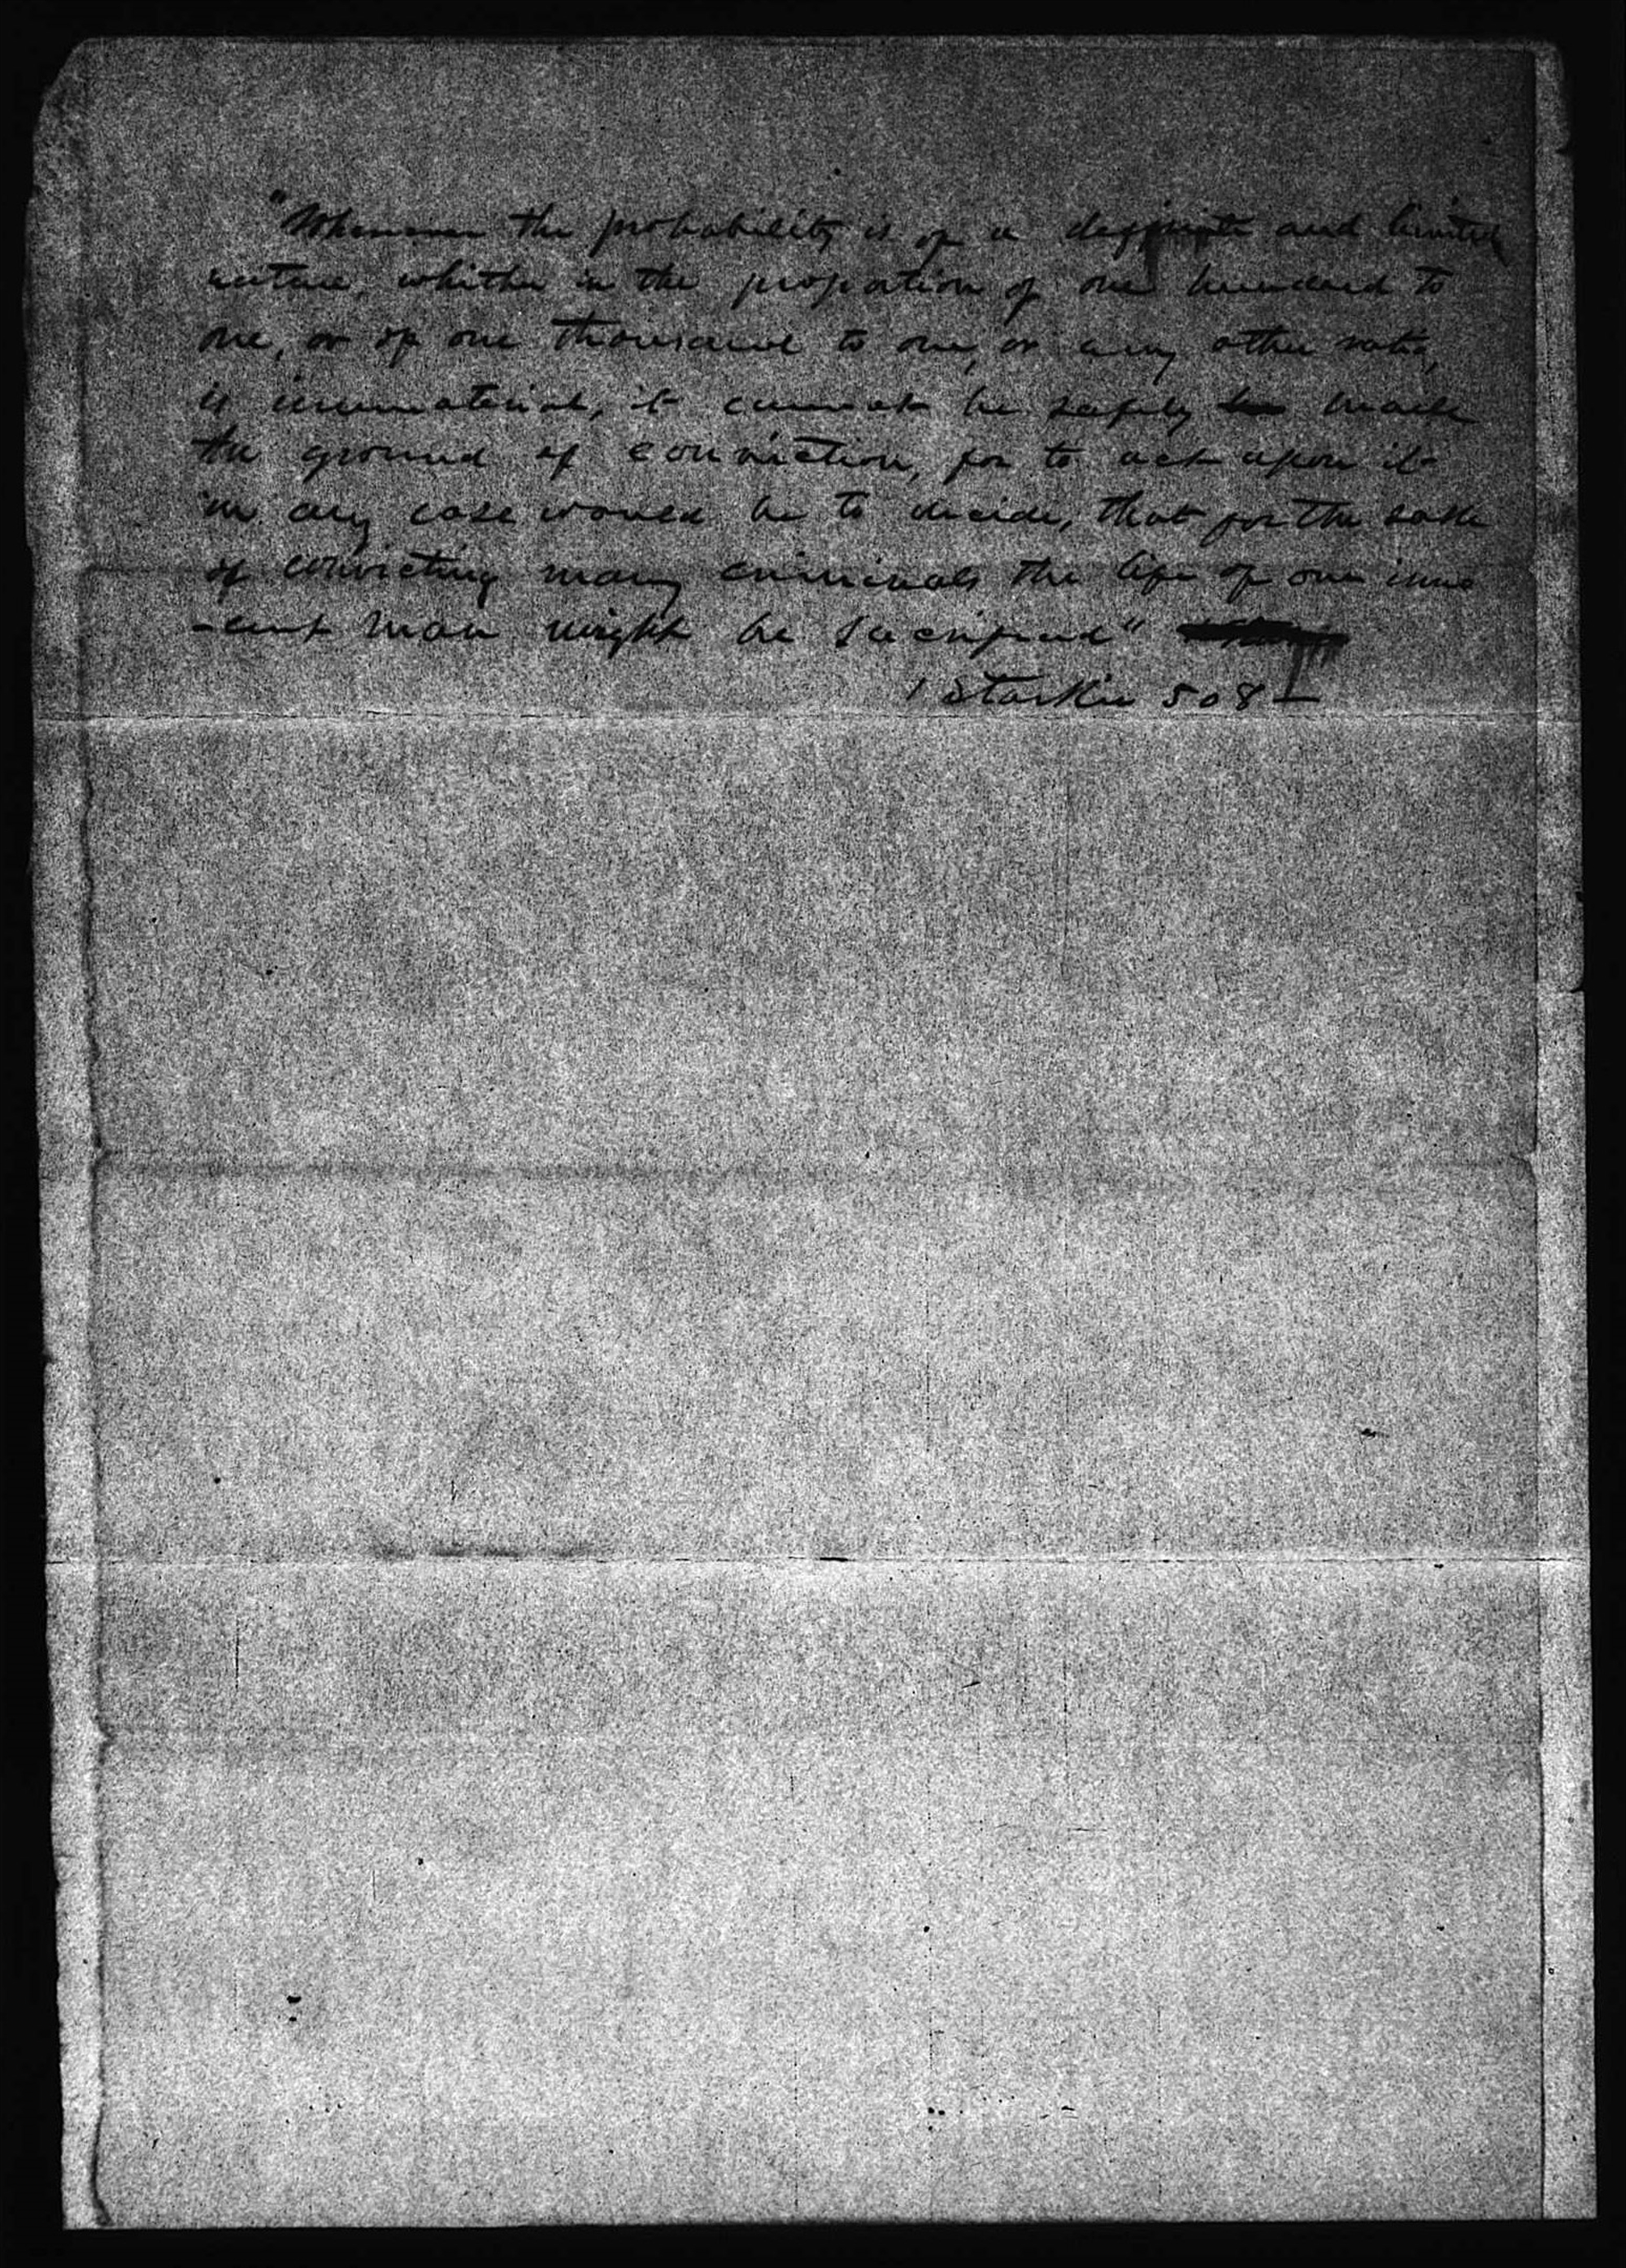 "Whenever the probability is of a definite and limited
nature, whether in the proportion of one hundred to
one, or of one thousand to one, or any other ratio,
is immaterial, it cannot be safely be made
the ground of conviction, for to act upon it
in any case would be to decide, that for the sake
of convicting many criminals the life of one inno
-cent man might be sacrificed"
1 Starkie 508—